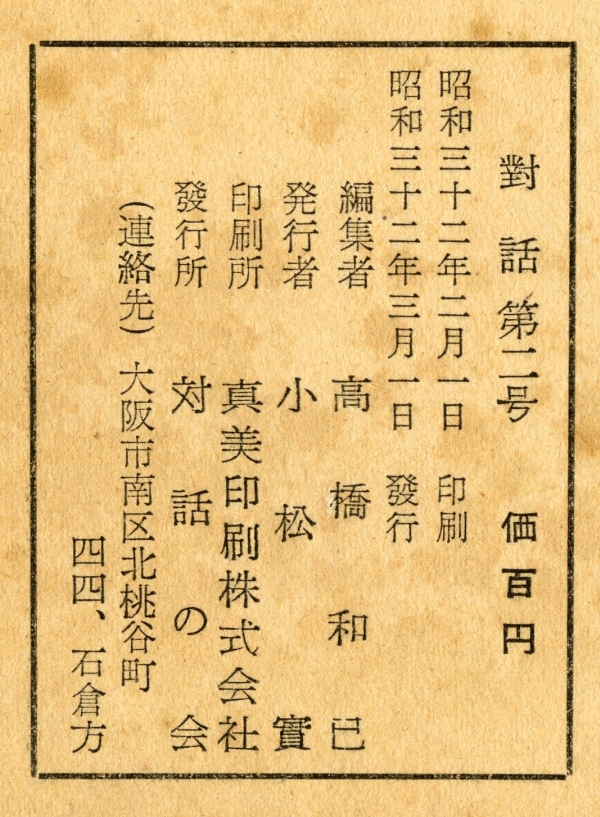 對話 第二号 価百円
昭和三十二年二月一日 印刷
昭和三十二年三月一日 發行
編集者 高橋和巳
発行者 小松實
印刷所 真美印刷株式会社
發行所 対話の会
(連絡先) 大阪市南区北桃谷町
四四、石倉方